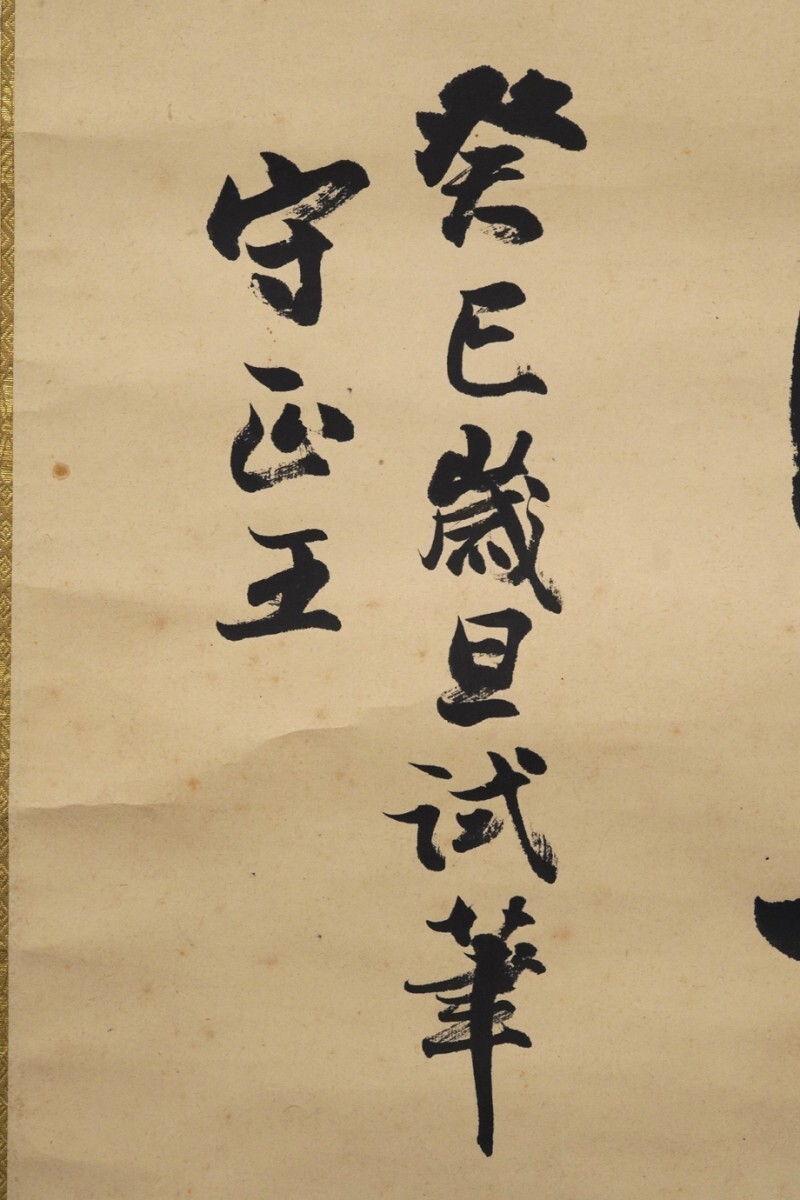 癸巳歳旦試筆
守正王